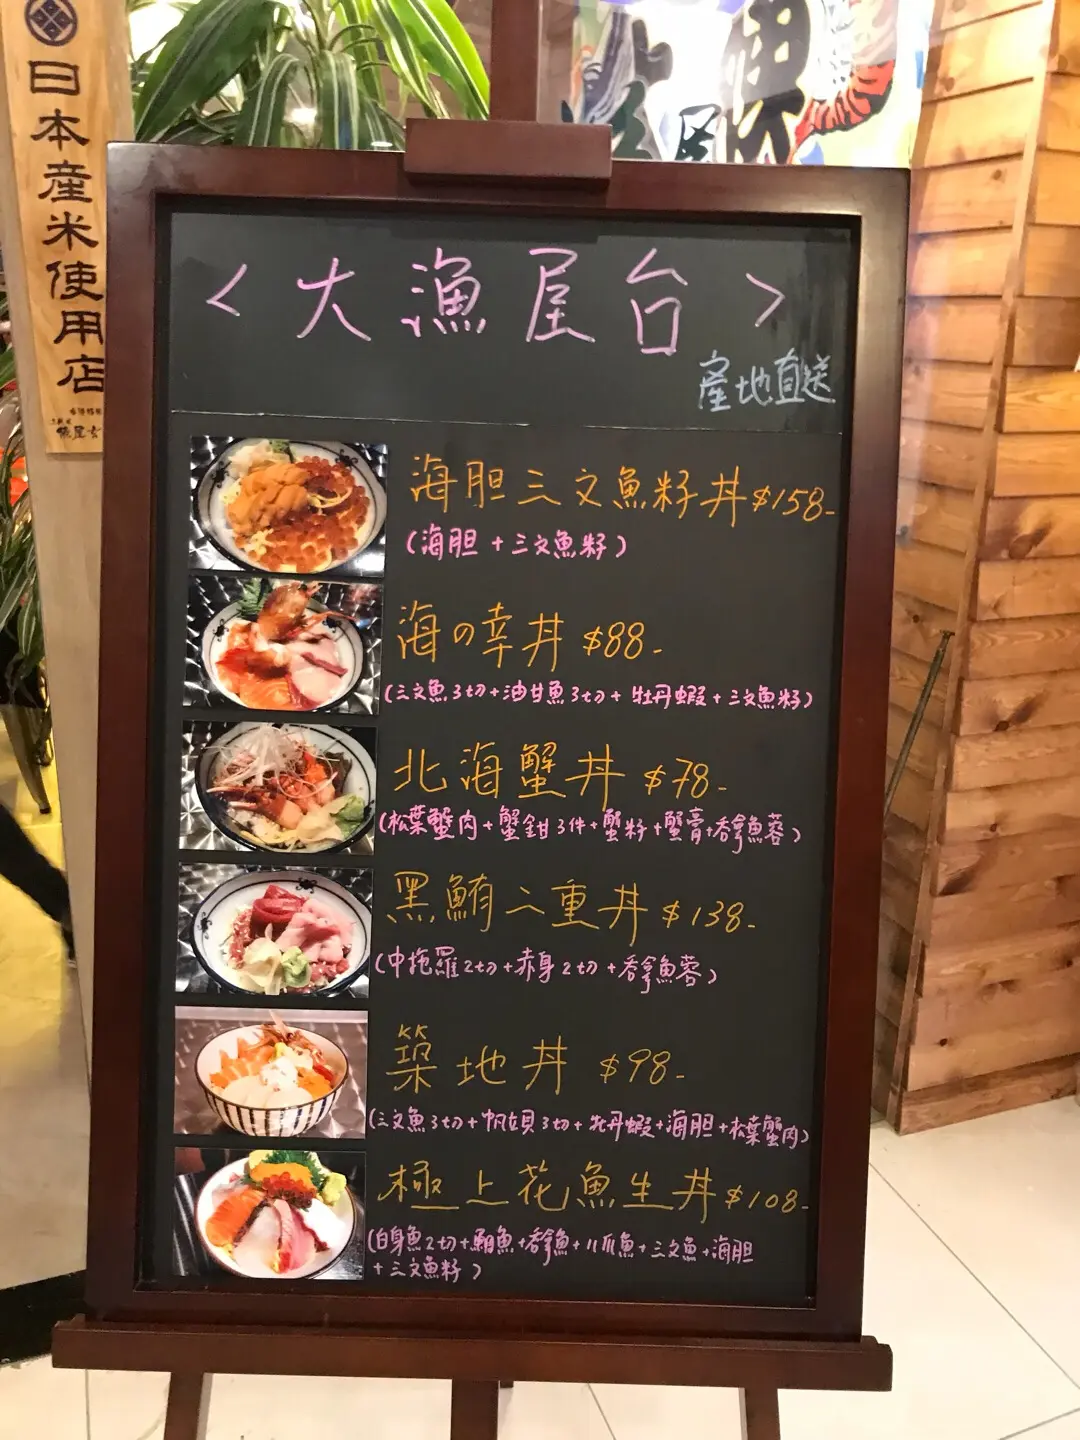 日本産米使用店
<大漁屋台>
產地直送
海胆三文魚籽丼$158-
(海胆+三文魚籽)
海の幸丼 $88-
(三文魚3切+油甘魚3切+牡丹蝦+三文魚籽)
北海蟹丼 $78-
(松葉蟹肉+蟹鉗3件+蟹籽+蟹膏+吞拿魚蓉)
黑鮪二重丼 $138-
(中拖羅2切+赤身2切+吞拿魚蓉)
築地丼 $98-
(三文魚3切+帆立貝3切+牡丹蝦+海胆+松葉蟹肉)
極上花魚生丼 $108-
(白身魚2切+鮪魚+吞拿魚+八爪魚+三文魚+海胆
+三文魚籽)